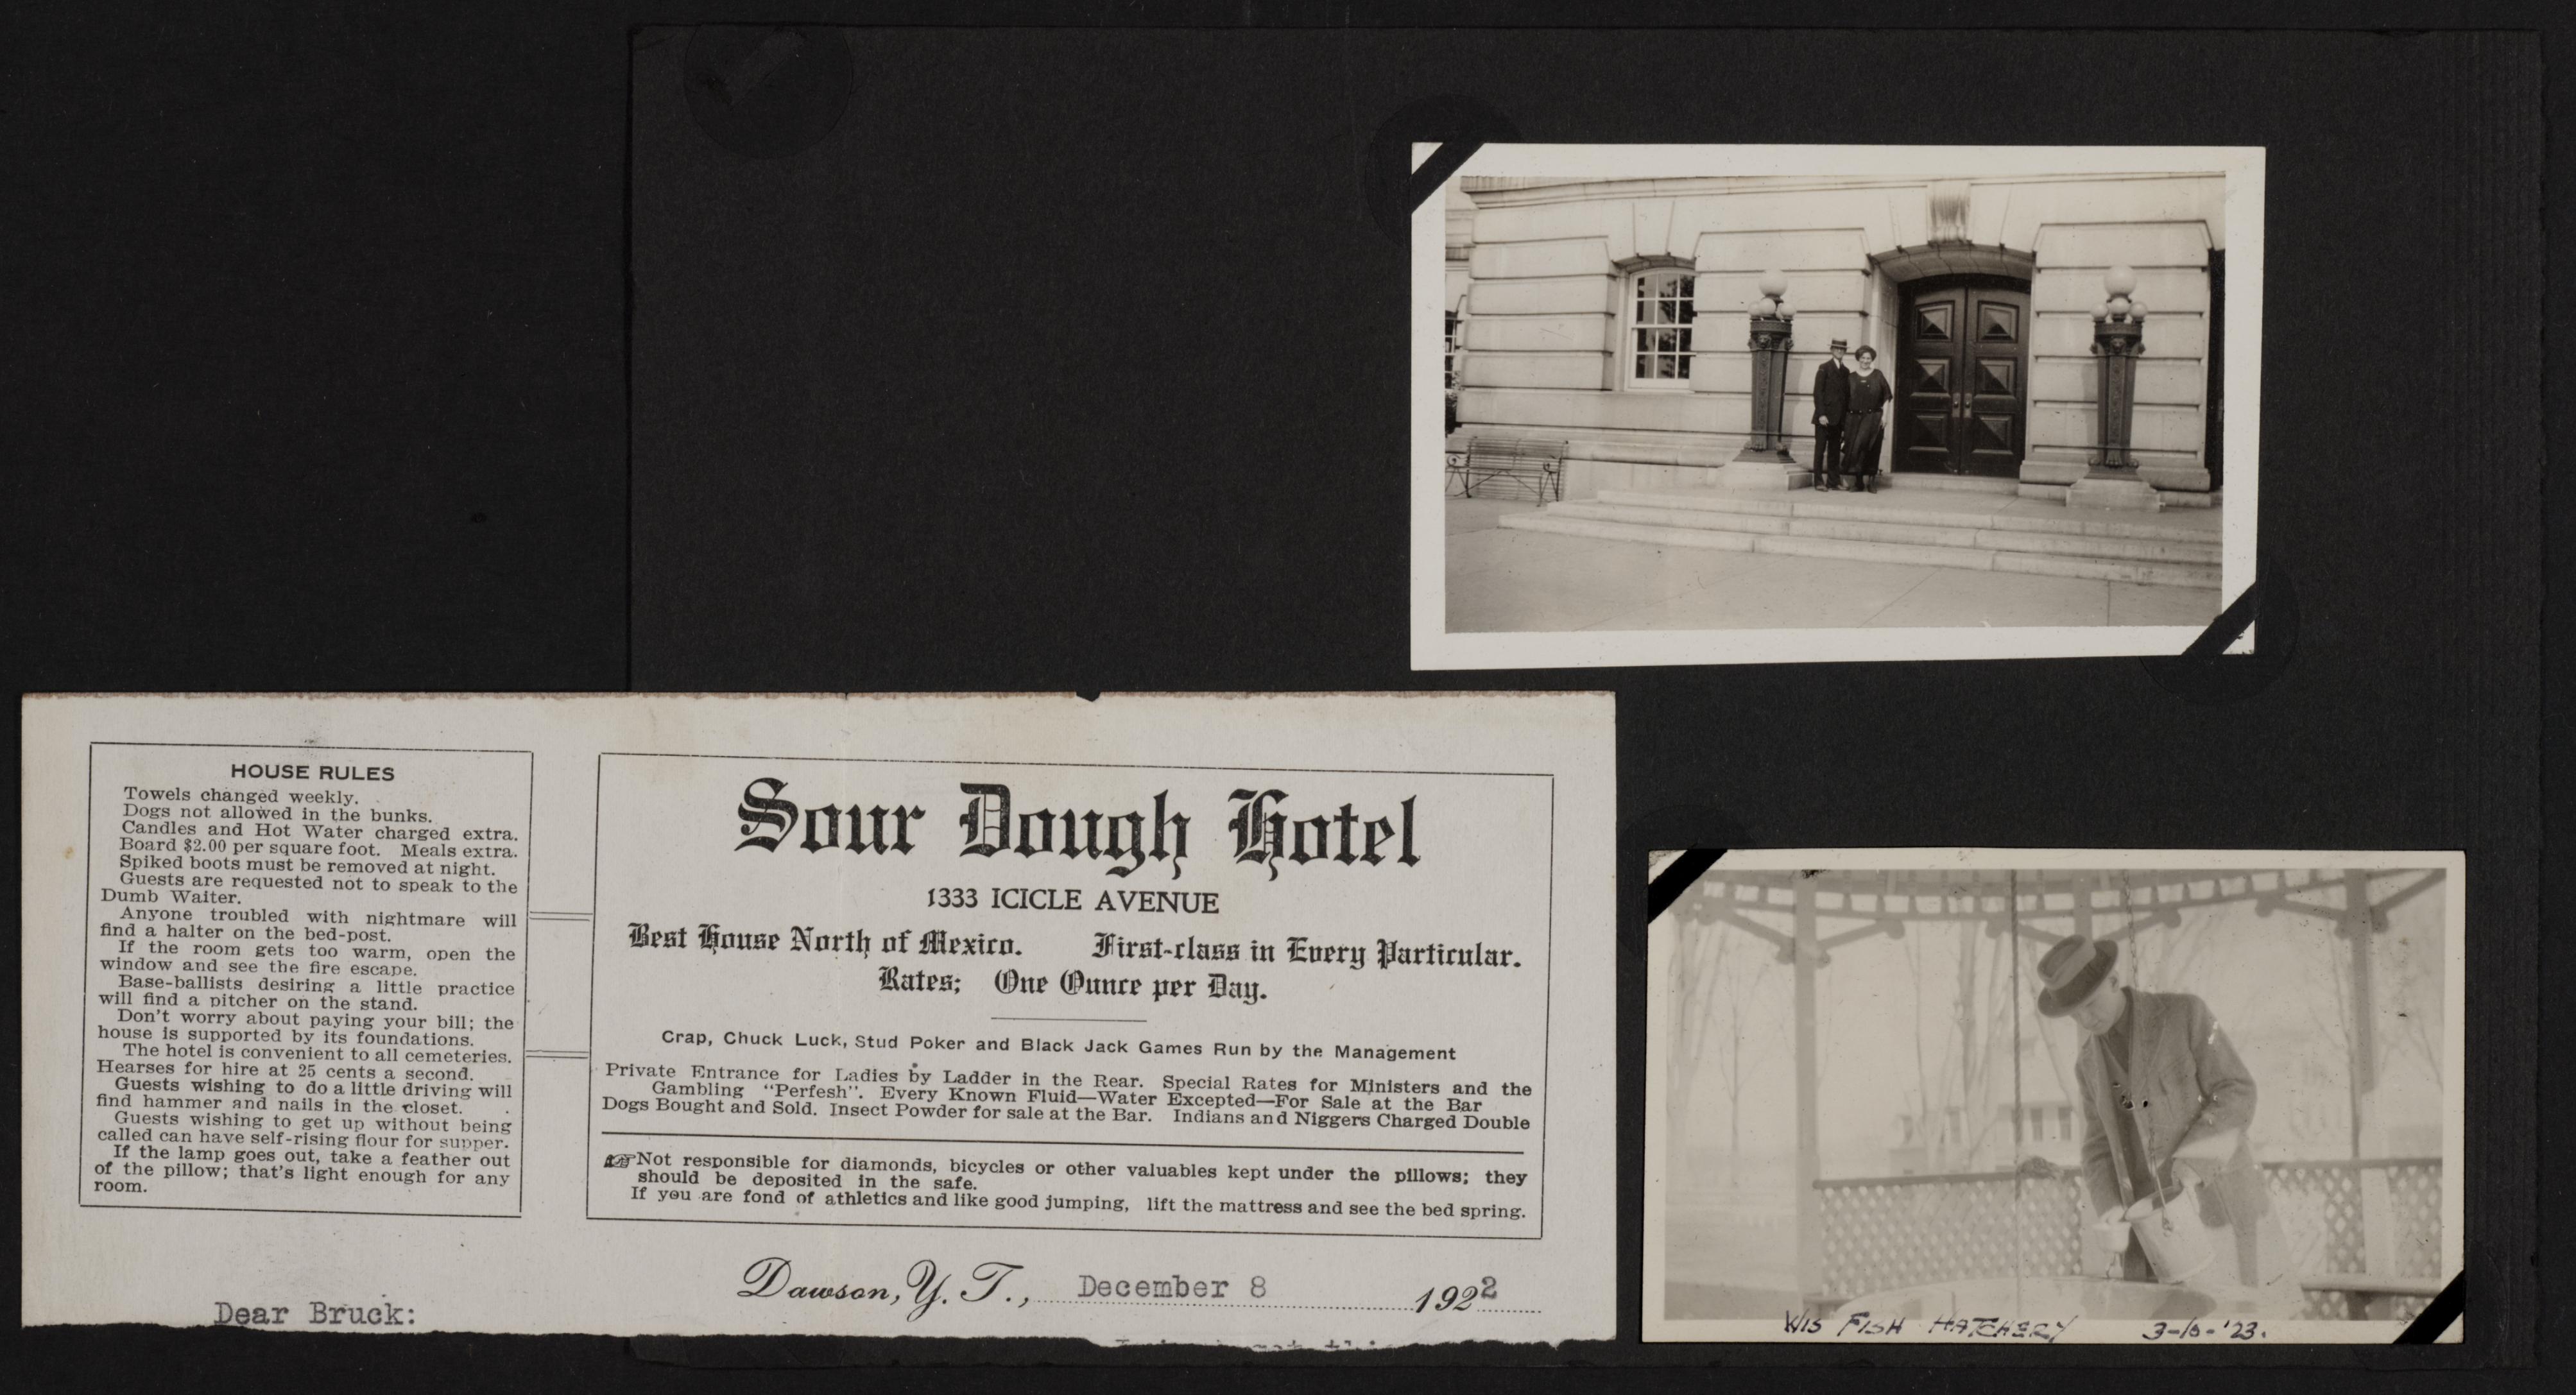 HOUSE RULES
Towels changed weekly.
Dogs not allowed in the bunks.
Candles and Hot Water charged extra.
Board $2.00 per square foot. Meals extra.
Spiked boots must be removed at night.
Guests are requested not to speak to the
Dumb Waiter.
Anyone troubled with nightmare will
find a halter on the bed-post.
If the room gets too warm, open the
window and see the fire escape.
Base-ballists desiring a little practice
will find a pitcher on the stand.
Don't worry about paying your bill; the
house is supported by its foundations.
The hotel is convenient to all cemeteries.
Hearses for hire at 25 cents a second.
Guests wishing to do a little driving will
find hammer and nails in the closet.
Guests wishing to get up without being
called can have self-rising flour for supper.
If the lamp goes out, take a feather out
of the pillow; that's light enough for any
room.
Sour Dough Hotel
1333 ICICLE AVENUE
Best House North of Mexico. First-class in Every Particular.
Rates; One Ounce per Day.
Crap, Chuck Luck, Stud Poker and Black Jack Games Run by the Management
Private Entrance for Ladies by Ladder in the Rear. Special Rates for Ministers and the
Gambling "Perfesh". Every Known Fluid—Water Excepted—For Sale at the Bar
Dogs Bought and Sold. Insect Powder for sale at the Bar. Indians and Niggers Charged Double
☞Not responsible for diamonds, bicycles or other valuables kept under the pillows; they
should be deposited in the safe.
If you are fond of athletics and like good jumping, lift the mattress and see the bed spring.
Dawson, Y. T., December 8 1922
Dear Bruck:
WIS FISH HATCHERY 3-10-'23.